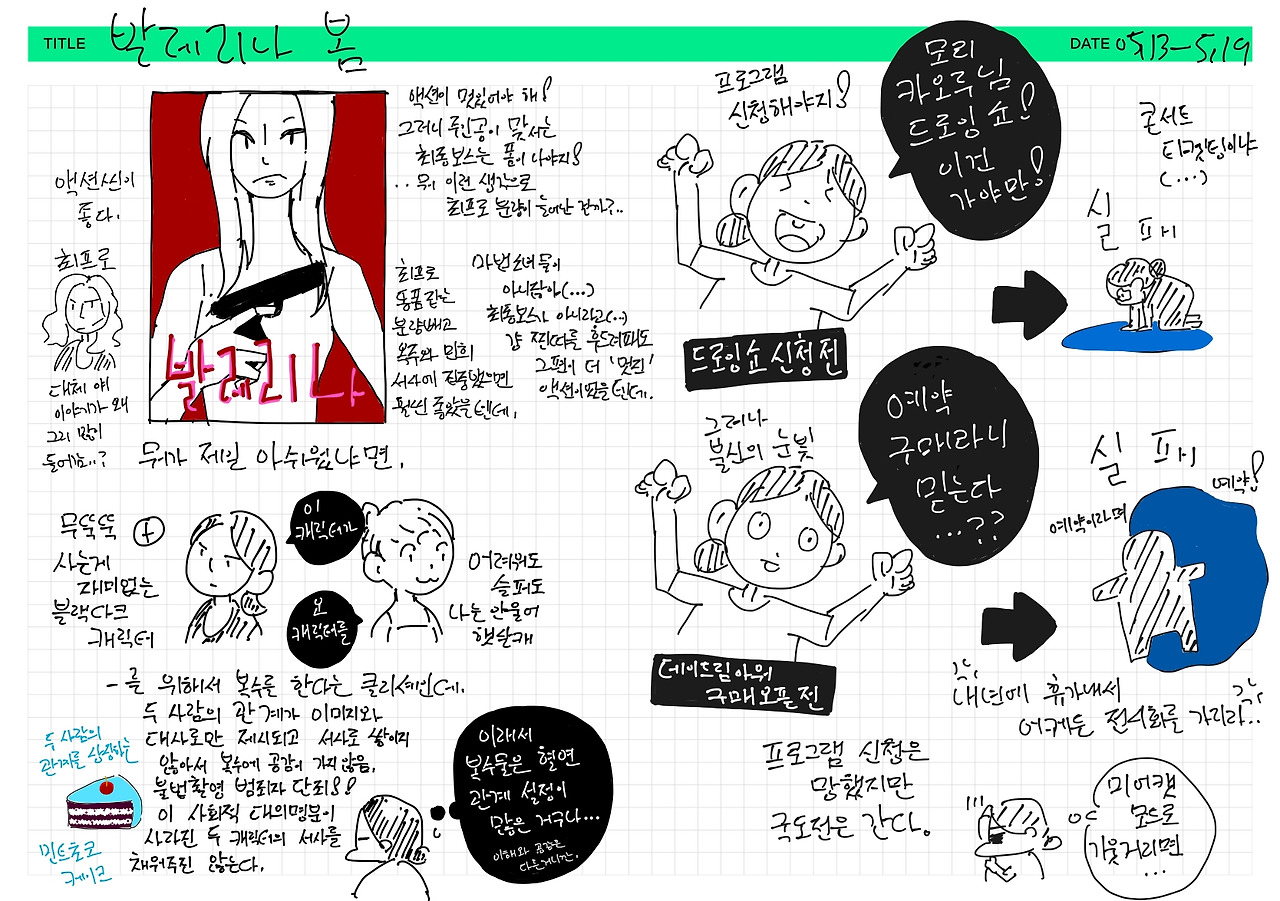 TITLE 발레리나 봄
DATE 05,13-5,19
액션씬이
좋다.
최프로
대체 얘
이야기가 왜
그리 많이
들어감..?
발레리나
액션이 멋있어야 해!
그러니 주인공이 맞서는
최종보스는 폼이 나야지!
..뭐 이런 생각으로
최프로 분량이 늘어난 건가?..
최프로
똥폼 잡는
분량 빼고
옥주와 민희
서사에 집중했으면
훨씬 좋았을텐데.
마법소녀물이
아니잖아(...)
최종보스가 아니라고(...)
걍 찐따를 후드려패도
그편이 더 '멋진'
액션이었을텐데.
뭐가 제일 아쉬웠냐면,
무뚝뚝 +
사는게
재미없는
블랙다크
캐릭터
이
캐릭터가
요
캐릭터를
어려워도
슬퍼도
나는 안울어
햇살캐
-를 위해서 복수를 한다는 클리셰인데.
두 사람의 관계가 이미지와
대사로만 제시되고 서사로 쌓이지
않아서 복수에 공감이 가지않음.
불법촬영 범죄자 단죄!!
이 사회적 대의명분이
사라진 두 캐릭터의 서사를
채워주진 않는다.
두 사람의
관계를 상징하는
민트초코
케이크
이래서
복수물은 혈연
관계 설정이
많은 거구나...
이해와 공감은
다른거니깐.
프로그램
신청해야지!
모리
카오루님
드로잉 쇼!
이건
가야만!
드로잉쇼 신청 전
콘서트
티켓팅이냐
(...)
실패
그러나
불신의 눈빛
예약
구매라니
믿는다
...??
데이드림 아워
구매 오픈 전
실패
예약이라며
예약!
내년에 휴가내서
어케든 전시회를 가리라..
프로그램 신청은
망했지만
국도전은 간다.
미어캣
모드로
기웃거리면
...